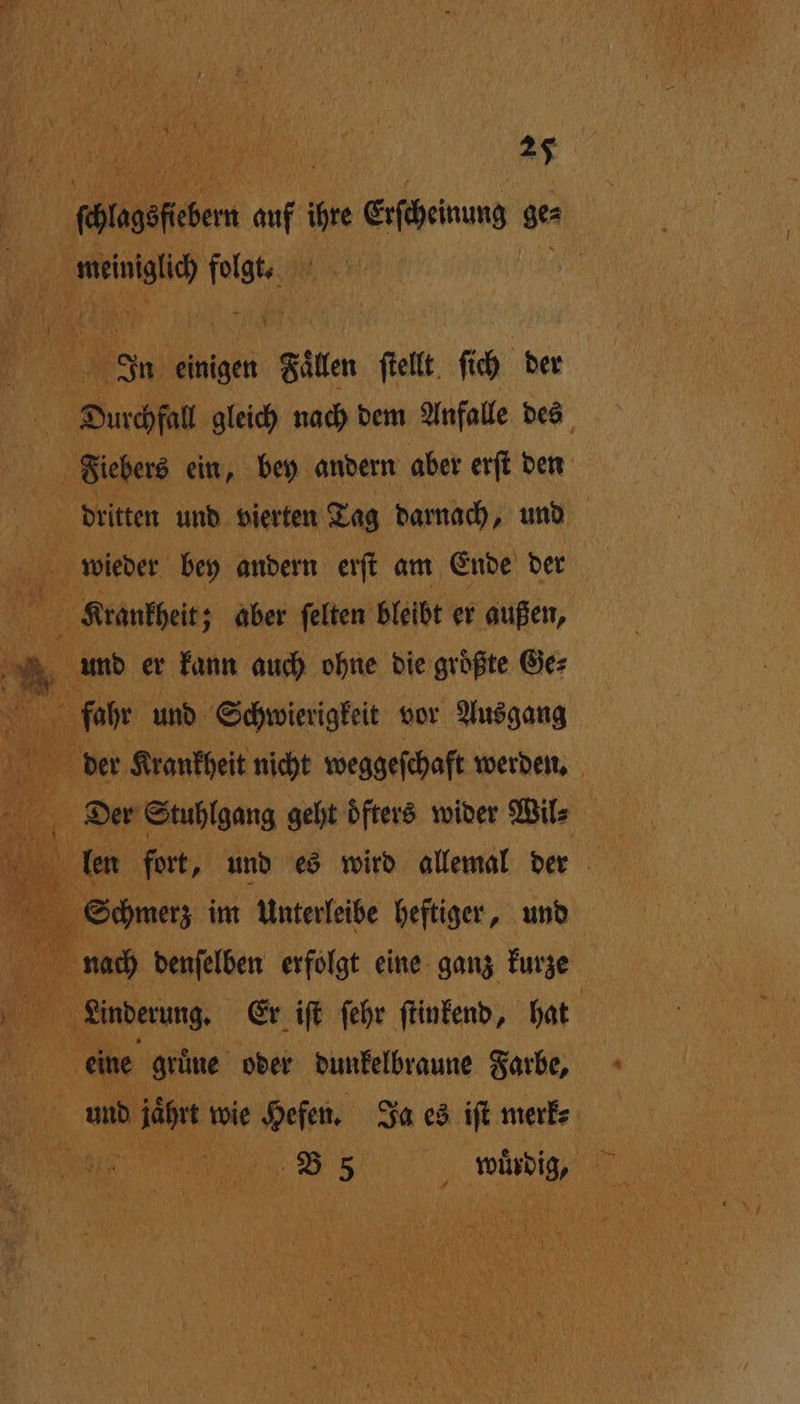 25
ſchlagsfiebern auf ihre Erſcheinung ge⸗
meiniglich folgt.
In einigen Faͤllen ſtellt ſich der
Durchfall gleich nach dem Anfalle des
Fiebers ein, bey andern aber erſt den
dritten und vierten Tag darnach, und
wieder bey andern erſt am Ende der
Krankheit; aber ſelten bleibt er außen,
und er kann auch ohne die groͤßte Ge⸗
fahr und Schwierigkeit vor Ausgang
der Krankheit nicht weggeſchaft werden.
Der Stuhlgang geht oͤfters wider Wil⸗
len fort, und es wird allemal der
Schmerz im Unterleibe heftiger, und
nach denſelben erfolgt eine ganz kurze
Linderung. Er iſt ſehr ſtinkend, hat
eine gruͤne oder dunkelbraune Farbe,
und jaͤhrt wie Hefen. Ja es iſt merk⸗
B 5 wuͤrdig,